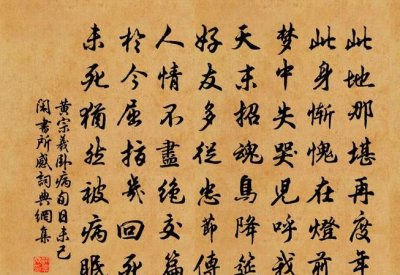 此地那堪再度年
此身惭愧在燈前
梦中失哭兒呼我
天末招魂鳥降筵
好友多從忠節傳
人情不盡絕交篇
於今屈指幾回死
未死猶然被病眠
黄宗羲卧病旬日未已
閑書所感詞典網集